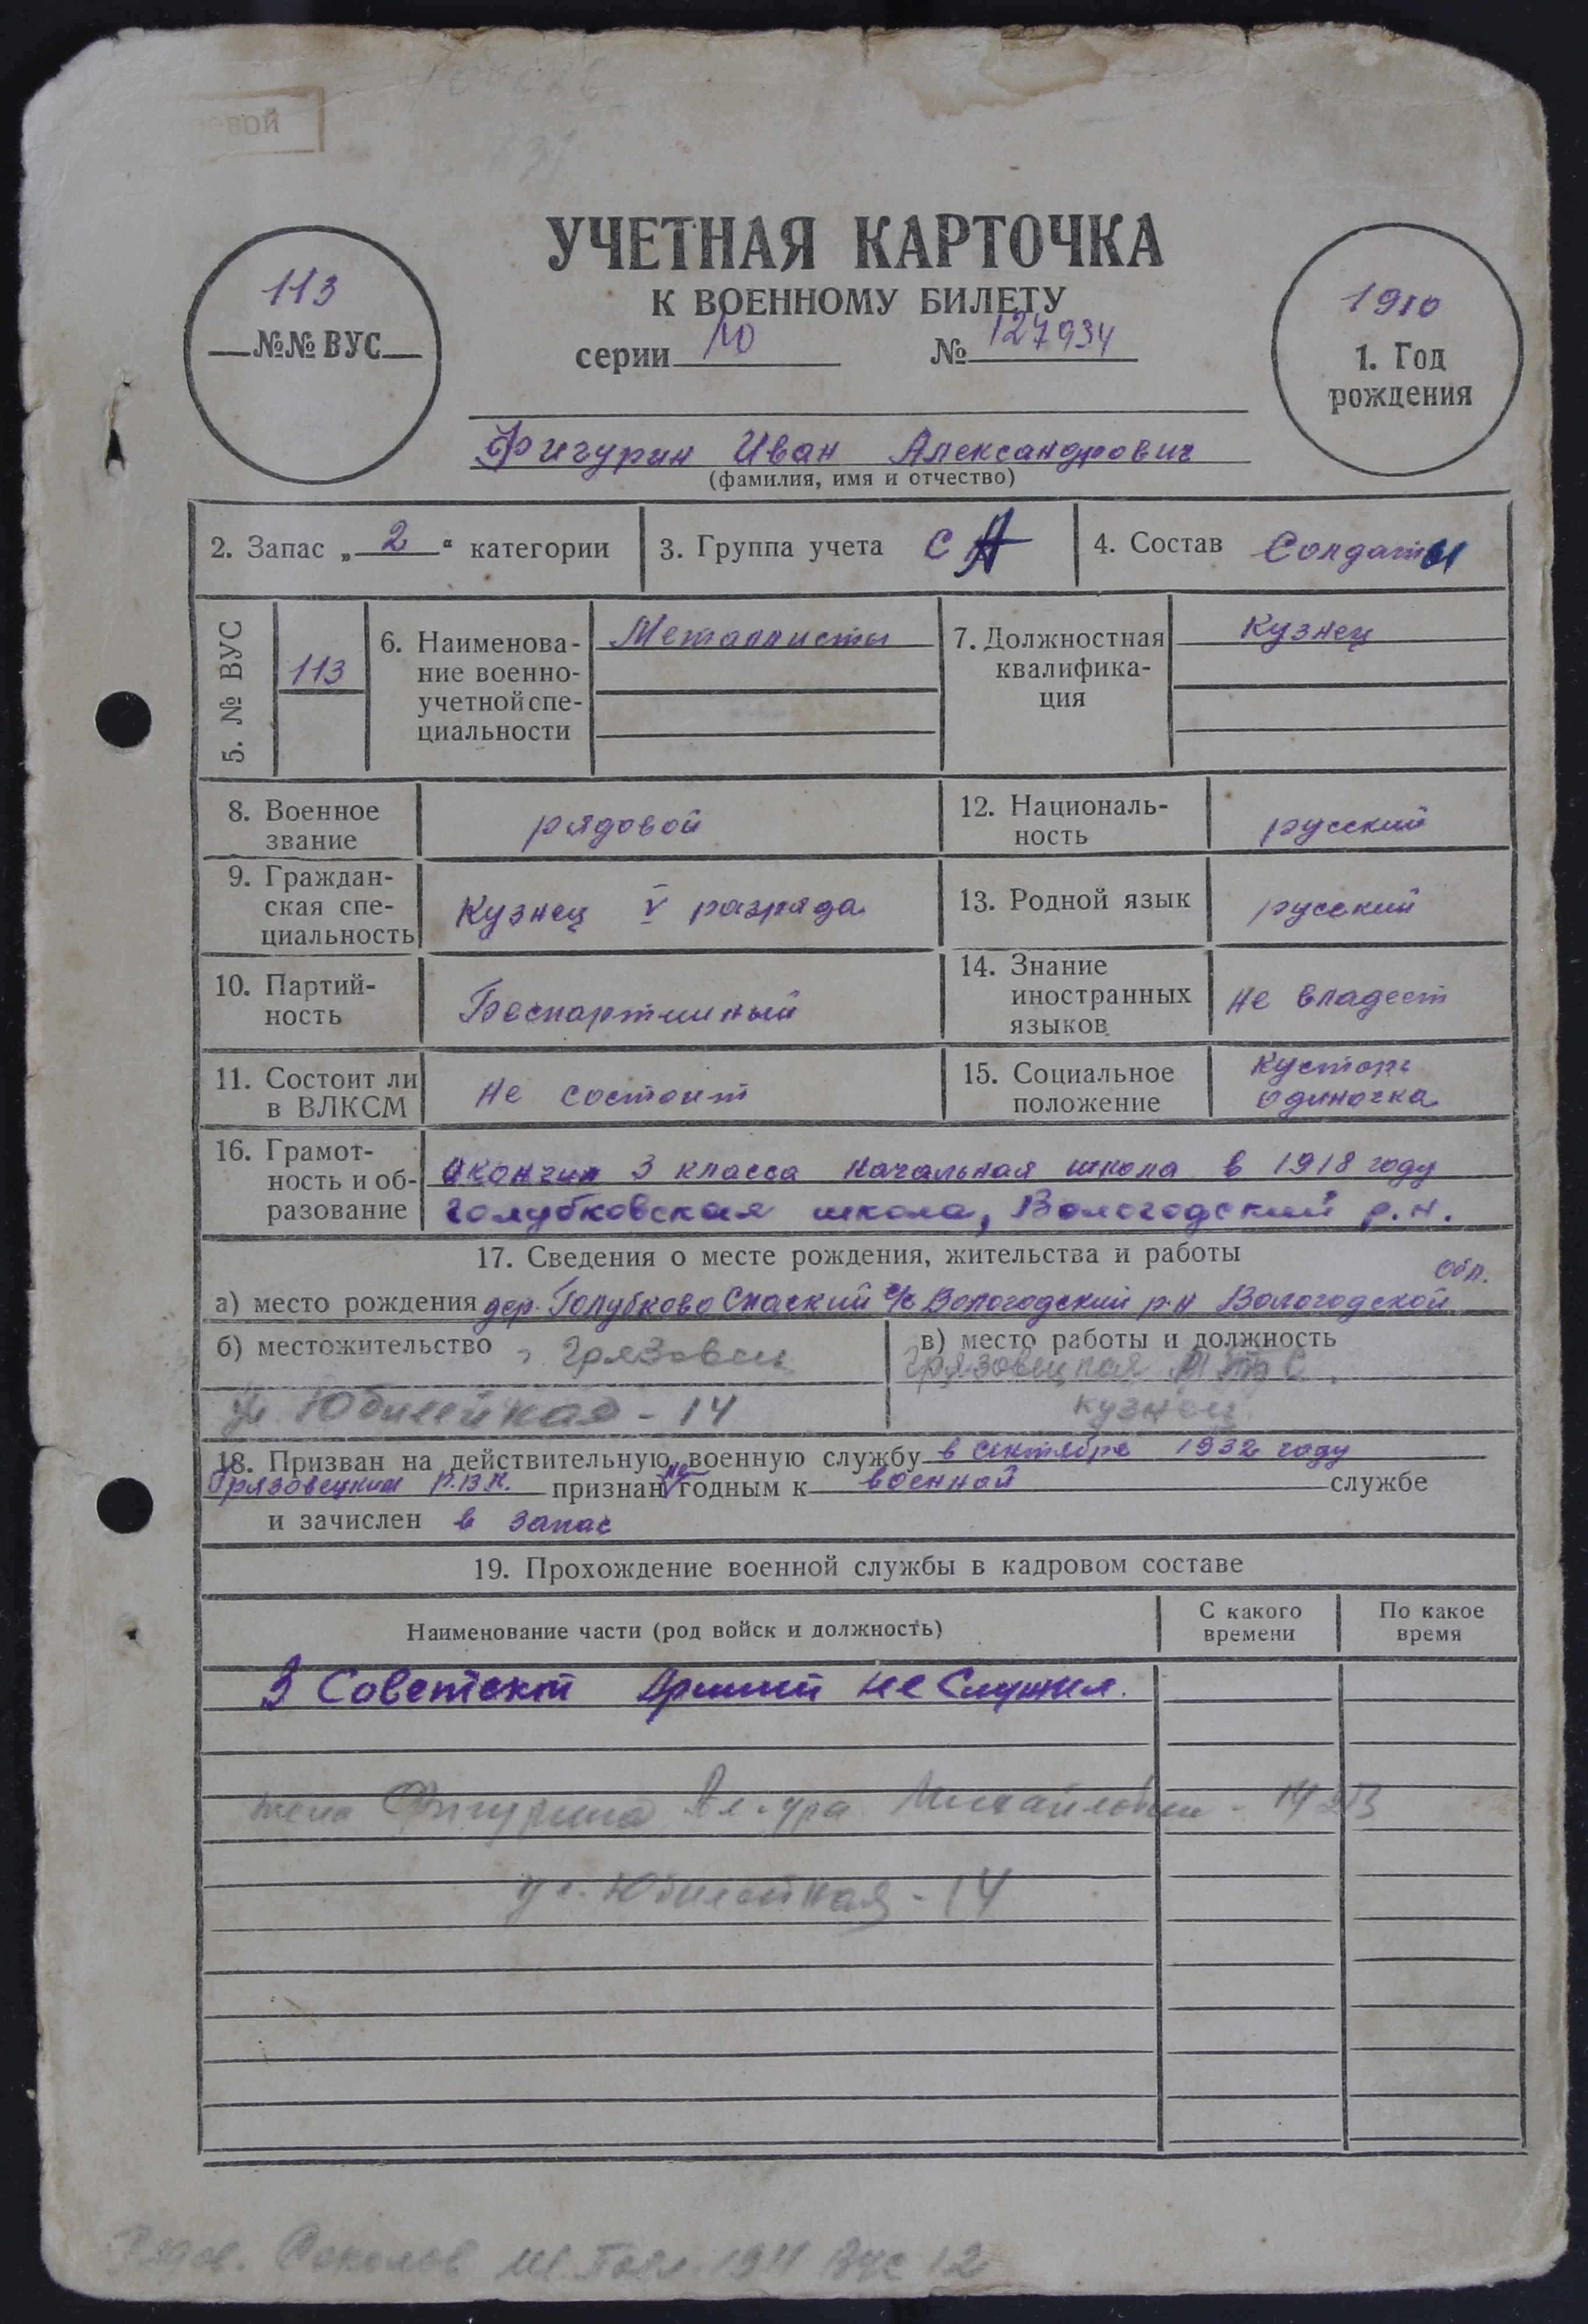 УЧЕТНАЯ КАРТОЧКА
К ВОЕННОМУ БИЛЕТУ
серии № 127934
113
№№ ВУС
1910
1. Год
рождения
Фигурин Иван Александрович
(фамилия, имя и отчество)
2. Запас „ 2 “ категории
3. Группа учета СА
4. Состав Солдаты
5. № ВУС
113
6. Наименова-
ние военно-
учетной спе-
циальности
Металлисты
7. Должностная
квалифика-
ция
Кузнец
8. Военное
звание
рядовой
12. Националь-
ность
русский
9. Граждан-
ская спе-
циальность
Кузнец V разряда
13. Родной язык
русский
10. Партий-
ность
Беспартийный
14. Знание
иностранных
языков
не владеет
11. Состоит ли
в ВЛКСМ
не состоит
15. Социальное
положение
Кустарь
одиночка
16. Грамот-
ность и об-
разование
Окончил 3 класса начальная школа в 1918 году
Голубковская школа, Вологодский р.н.
17. Сведения о месте рождения, жительства и работы
обл.
а) место рождения дер. Голубково Спаский с/с Вологодский р-н Вологодской
б) местожительство г Грязовец
ул Юбилейная - 14
в) место работы и должность
Грязовецкая
кузнец
18. Призван на действительную военную службу в сентябре 1932 году
Грязовецким Р.В.К. признан не годным к военной службе
и зачислен в запас
19. Прохождение военной службы в кадровом составе
Наименование части (род войск и должность)
С какого
времени
По какое
время
В Советской Армии не служил.
жена Фигурина Ал-дра Михайловна -
ул. Юбилейная - 14
Рядов. Соколов 1911 ВУС 12